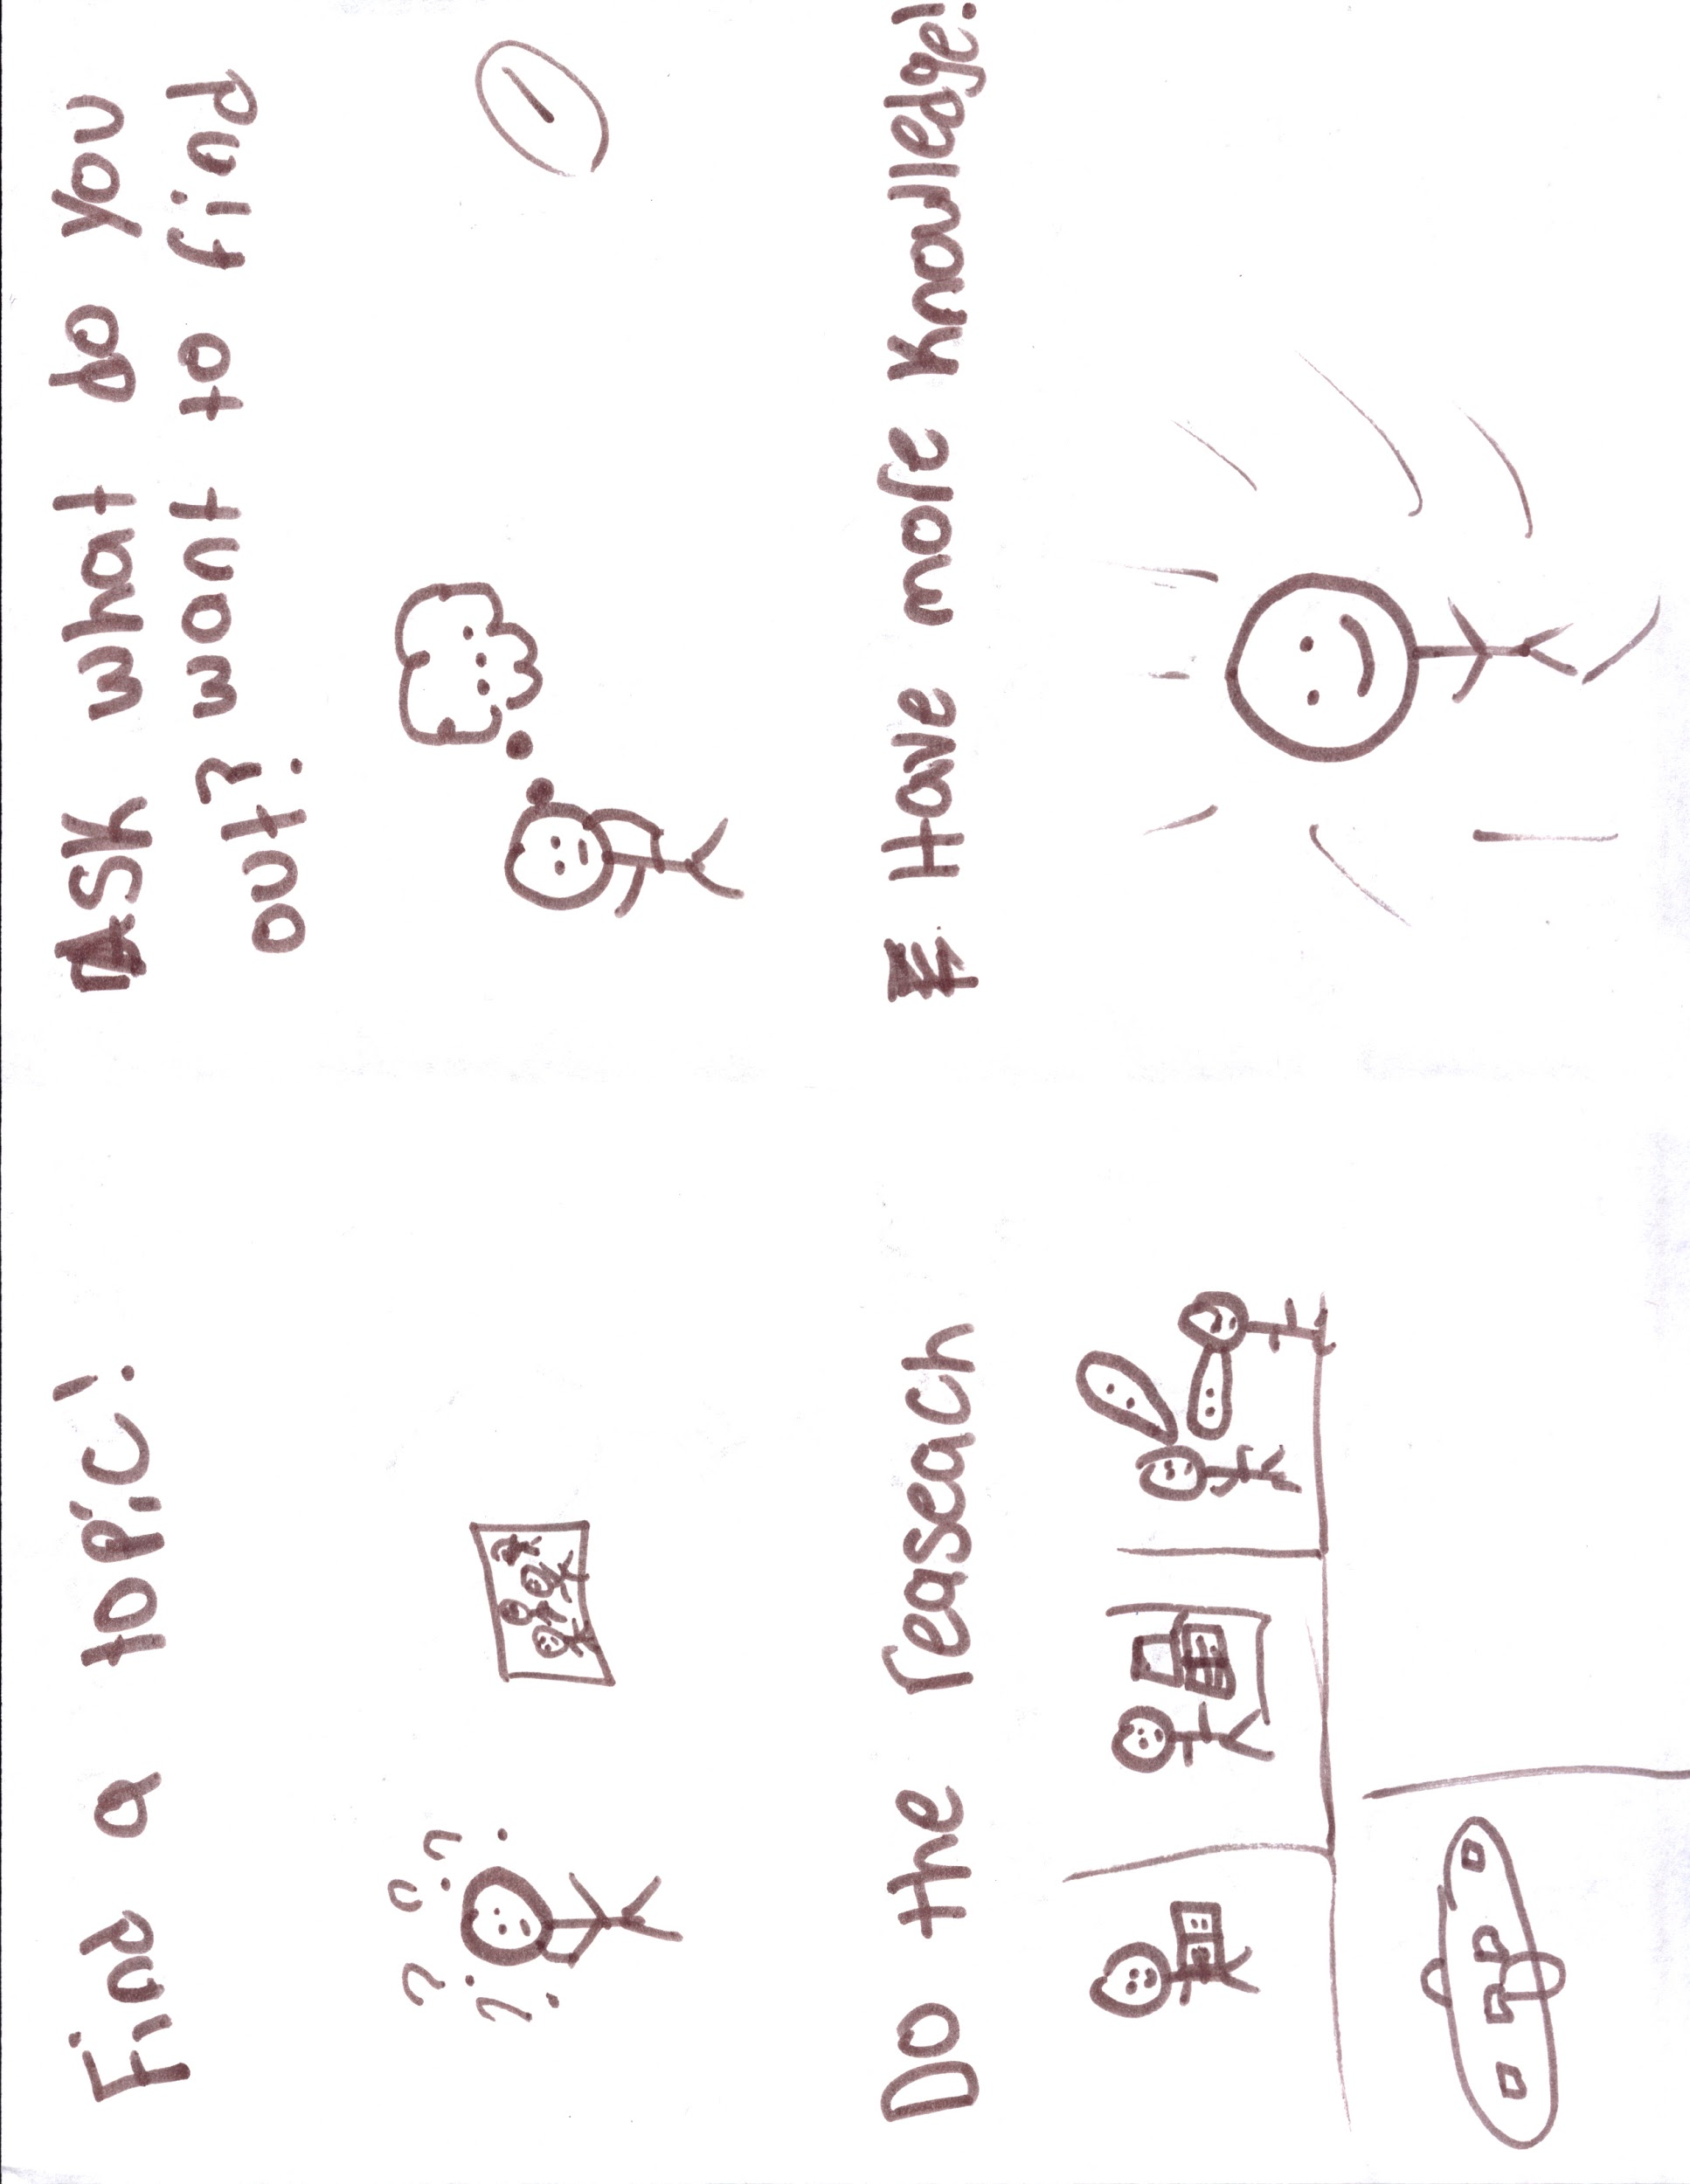 Find a topic!
Ask what do you
want to find
out?
1
Do the reaseach
Have more knowlledge!